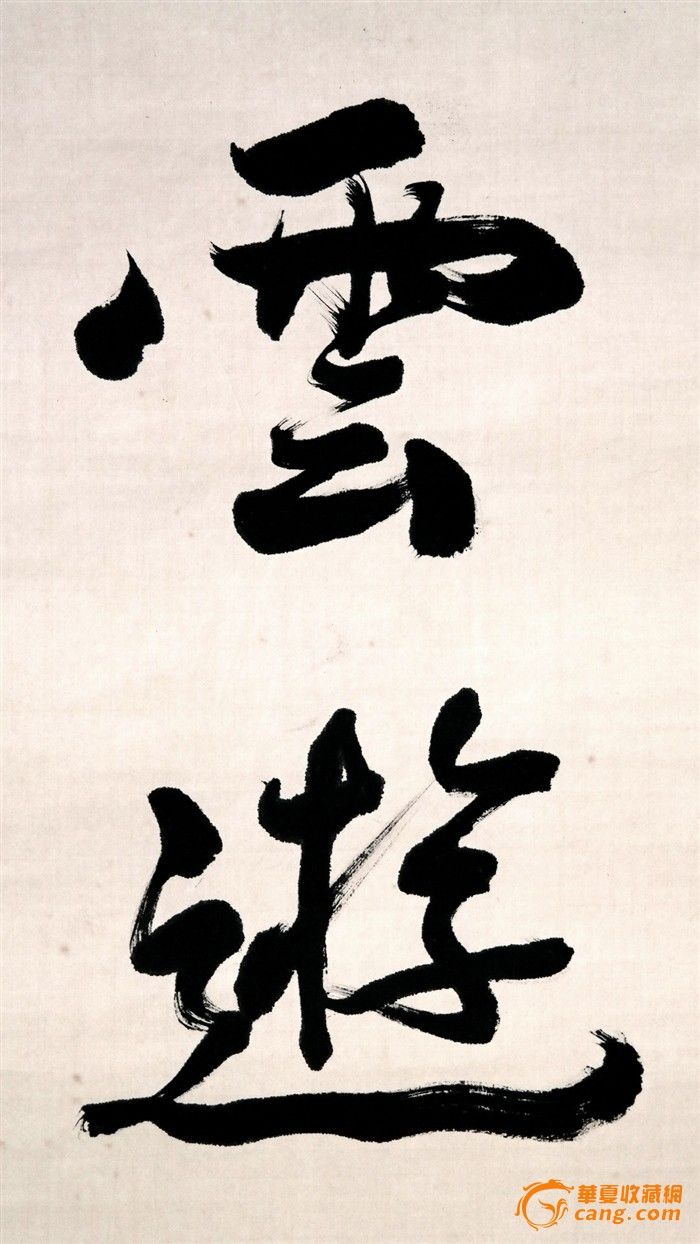 雲
遊
華夏收藏網
cang.com